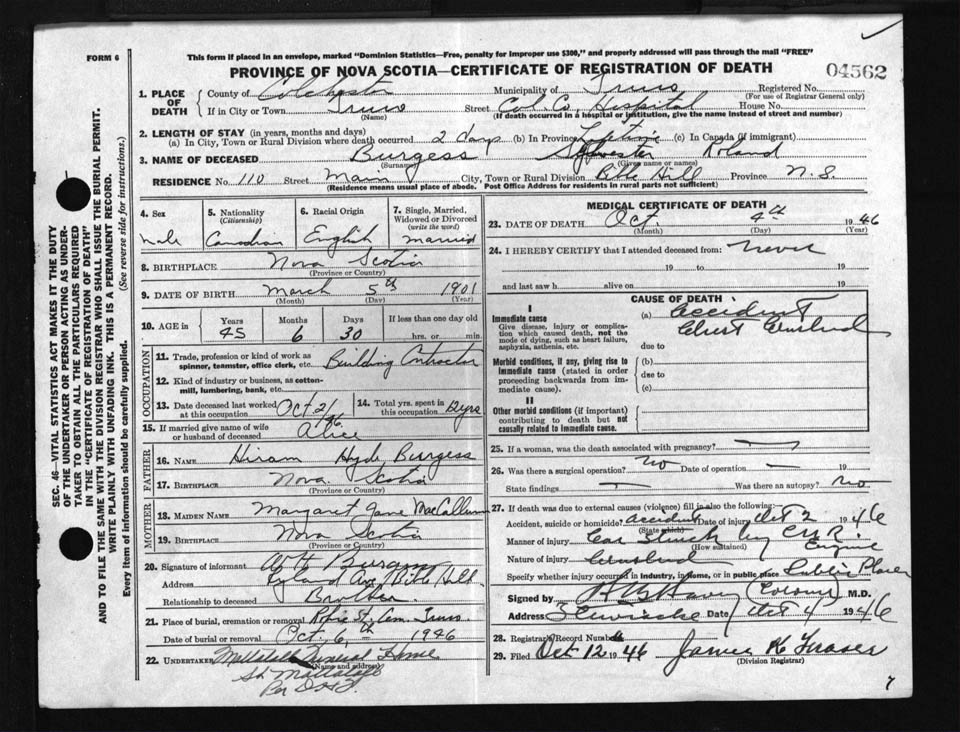 FORM 6
This form if placed in an envelope, marked "Dominion Statistics—Free, penalty for improper use $300," and properly addressed will pass through the mail "FREE"
PROVINCE OF NOVA SCOTIA—CERTIFICATE OF REGISTRATION OF DEATH
04562
1. PLACE OF DEATH County of Colchester Municipality of Truro Registered No.
(For use of Registrar General only)
If in City or Town Truro Street Col. Co. Hospital House No.
(Name) (If death occurred in a hospital or institution, give the name instead of street and number)
2. LENGTH OF STAY (in years, months and days)
(a) In City, Town or Rural Division where death occurred 2 days (b) In Province Lifetime (c) In Canada (if immigrant)
3. NAME OF DECEASED Burgess Sylvester Roland
(Surname) (Given name or names)
RESIDENCE No. 110 Street Main City, Town or Rural Division Bible Hill Province N.S.
(Residence means usual place of abode. Post Office Address for residents in rural parts not sufficient)
SEC. 46—VITAL STATISTICS ACT MAKES IT THE DUTY
OF THE UNDERTAKER OR PERSON ACTING AS UNDER-
TAKER TO OBTAIN ALL THE PARTICULARS REQUIRED
IN THE "CERTIFICATE OF REGISTRATION OF DEATH"
AND TO FILE THE SAME WITH THE DIVISION REGISTRAR WHO SHALL ISSUE THE BURIAL PERMIT.
WRITE PLAINLY WITH UNFADING INK. THIS IS A PERMANENT RECORD.
Every item of information should be carefully supplied. (See reverse side for instructions.)
4. Sex 5. Nationality 6. Racial Origin 7. Single, Married,
(Citizenship) Widowed or Divorced
(write the word)
Male Canadian English Married
8. BIRTHPLACE Nova Scotia
(Province or Country)
9. DATE OF BIRTH March 5th 1901
(Month) (Day) (Year)
10. AGE in Years Months Days If less than one day old
45 6 30 hrs. or min.
OCCUPATION
11. Trade, profession or kind of work as
spinner, teamster, office clerk, etc. Building Contractor
12. Kind of industry or business, as cotton-
mill, lumbering, bank, etc.
13. Date deceased last worked at this occupation Oct 2/46
14. Total yrs. spent in this occupation 12 yrs
15. If married give name of wife or husband of deceased Alice
FATHER
16. NAME Hiram Hyde Burgess
17. BIRTHPLACE Nova Scotia
(Province or Country)
MOTHER
18. MAIDEN NAME Margaret Jane MacCallum
19. BIRTHPLACE Nova Scotia
(Province or Country)
20. Signature of informant Burgess
Address Ryland Ave, Bible Hill
Relationship to deceased Brother
21. Place of burial, cremation or removal Robie St. Cem. Truro
Date of burial or removal Oct. 6th 1946
22. UNDERTAKER Mattatall Funeral Home
(Name and address)
Mattatall
Per
MEDICAL CERTIFICATE OF DEATH
23. DATE OF DEATH Oct 4th 1946
(Month) (Day) (Year)
24. I HEREBY CERTIFY that I attended deceased from: never
19 to 19
and last saw h alive on 19
CAUSE OF DEATH
I
Immediate cause
Give disease, injury or complica-
tion which caused death, not the
mode of dying, such as heart failure,
asphyxia, asthenia, etc.
(a) accident
Chest Crushed
due to
Morbid conditions, if any, giving rise to
immediate cause (stated in order
proceeding backwards from im-
mediate cause).
(b)
due to
(c)
II
Other morbid conditions (if important)
contributing to death but not
causally related to immediate cause.
25. If a woman, was the death associated with pregnancy? —
26. Was there a surgical operation? no Date of operation — 19
State findings — Was there an autopsy? no
27. If death was due to external causes (violence) fill in also the following:—
Accident, suicide or homicide? accident Date of injury Oct 2 1946
(State which)
Manner of injury Car struck by C.N.R. Engine
(How sustained)
Nature of injury Crushed
Specify whether injury occurred in industry, in home, or in public place Public Place
Signed by (Coroner) M.D.
Address Stewiacke Date Oct 4 1946
28. Registrar's Record Number
29. Filed Oct 12 1946 James K Fraser
(Division Registrar)
7